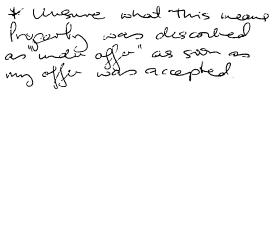 * Unsure what this means
Property was described
as "under offer" as soon as
my offer was accepted.